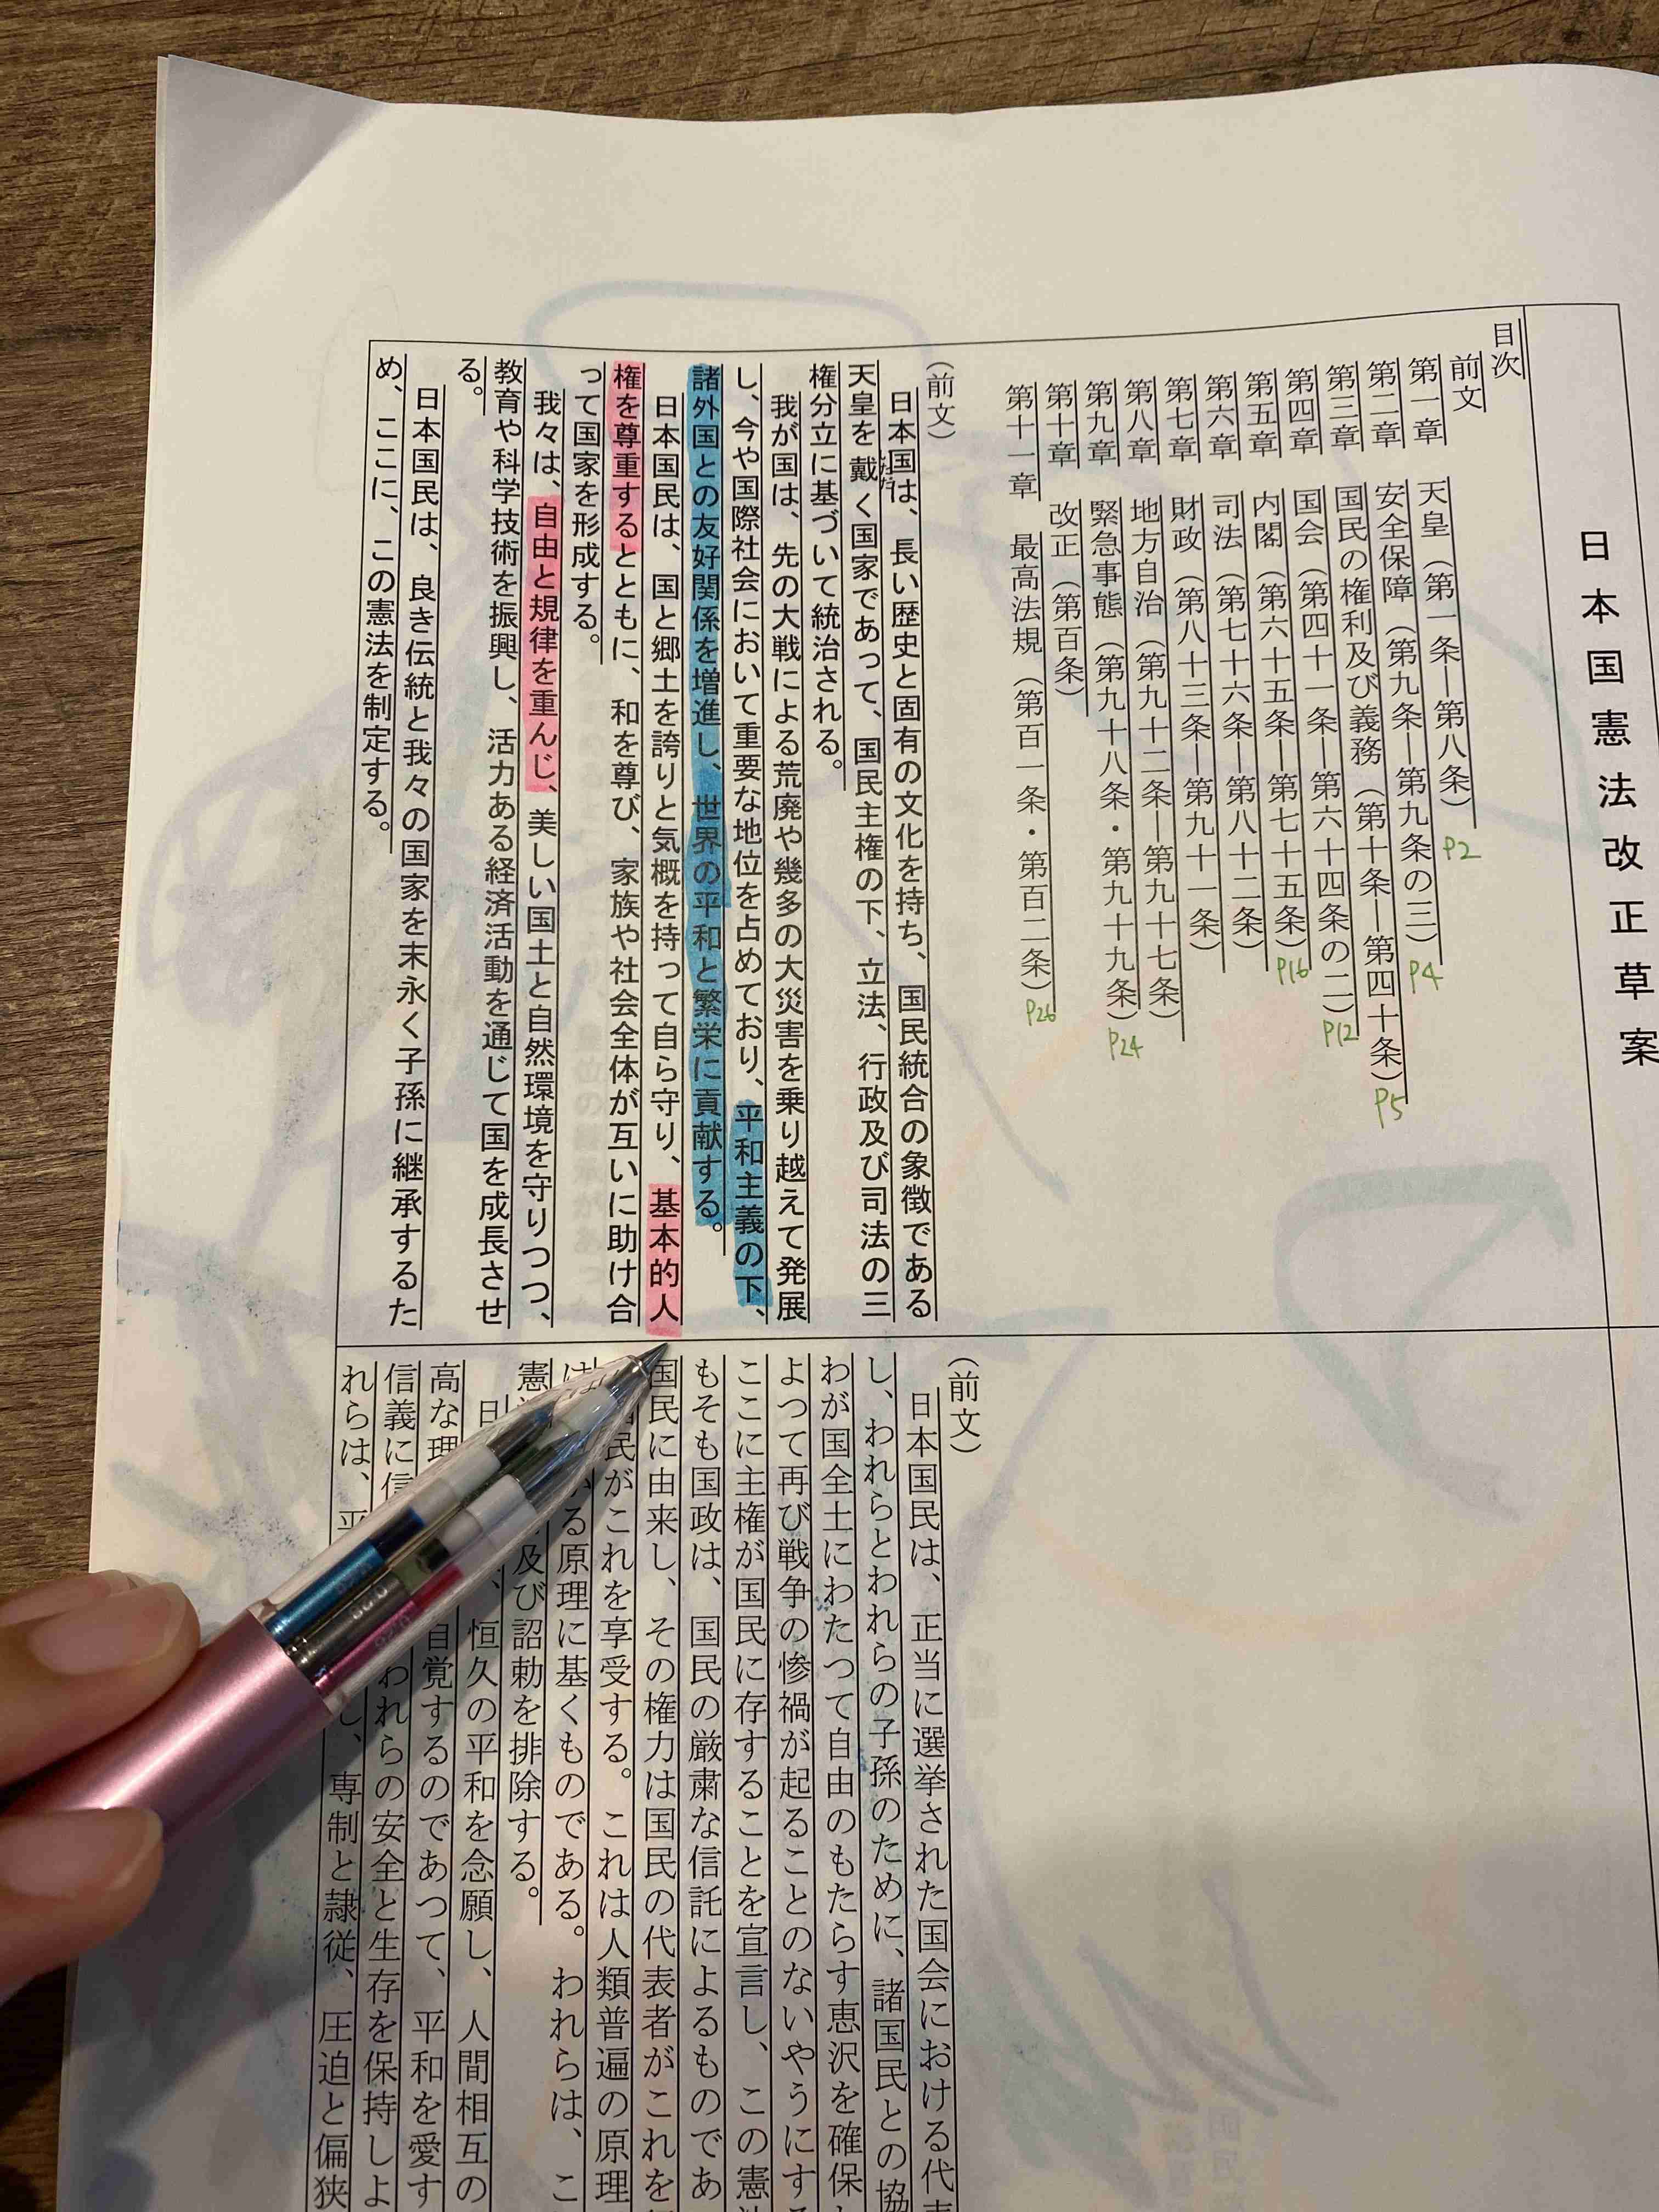 日本国憲法改正草案
目次
前文
第一章 天皇(第一条―第八条)P2
第二章 安全保障(第九条―第九条の三)P4
第三章 国民の権利及び義務(第十条―第四十条)P5
第四章 国会(第四十一条―第六十四条の二)P12
第五章 内閣(第六十五条―第七十五条)P16
第六章 司法(第七十六条―第八十二条)
第七章 財政(第八十三条―第九十一条)
第八章 地方自治(第九十二条―第九十七条)
第九章 緊急事態(第九十八条・第九十九条)P24
第十章 改正(第百条)
第十一章 最高法規(第百一条・第百二条)P26
(前文)
日本国は、長い歴史と固有の文化を持ち、国民統合の象徴である
天皇を戴く国家であって、国民主権の下、立法、行政及び司法の三
権分立に基づいて統治される。
我が国は、先の大戦による荒廃や幾多の大災害を乗り越えて発展
し、今や国際社会において重要な地位を占めており、平和主義の下、
諸外国との友好関係を増進し、世界の平和と繁栄に貢献する。
日本国民は、国と郷土を誇りと気概を持って自ら守り、基本的人
権を尊重するとともに、和を尊び、家族や社会全体が互いに助け合
って国家を形成する。
我々は、自由と規律を重んじ、美しい国土と自然環境を守りつつ、
教育や科学技術を振興し、活力ある経済活動を通じて国を成長させ
る。
日本国民は、良き伝統と我々の国家を末永く子孫に継承するた
め、ここに、この憲法を制定する。
(前文)
日本国民は、正当に選挙された国会における代表
し、われらとわれらの子孫のために、諸国民との協
わが国全土にわたつて自由のもたらす恵沢を確保
よつて再び戦争の惨禍が起ることのないやうにする
ここに主権が国民に存することを宣言し、この憲法
もそも国政は、国民の厳粛な信託によるものであ
国民に由来し、その権力は国民の代表者がこれを
民がこれを享受する。これは人類普遍の原理
は る原理に基くものである。われらは、こ
憲 及び詔勅を排除する。
日 、恒久の平和を念願し、人間相互の
高な理 自覚するのであつて、平和を愛す
信義に信 われらの安全と生存を保持しよ
れらは、平 し、専制と隷従、圧迫と偏狭